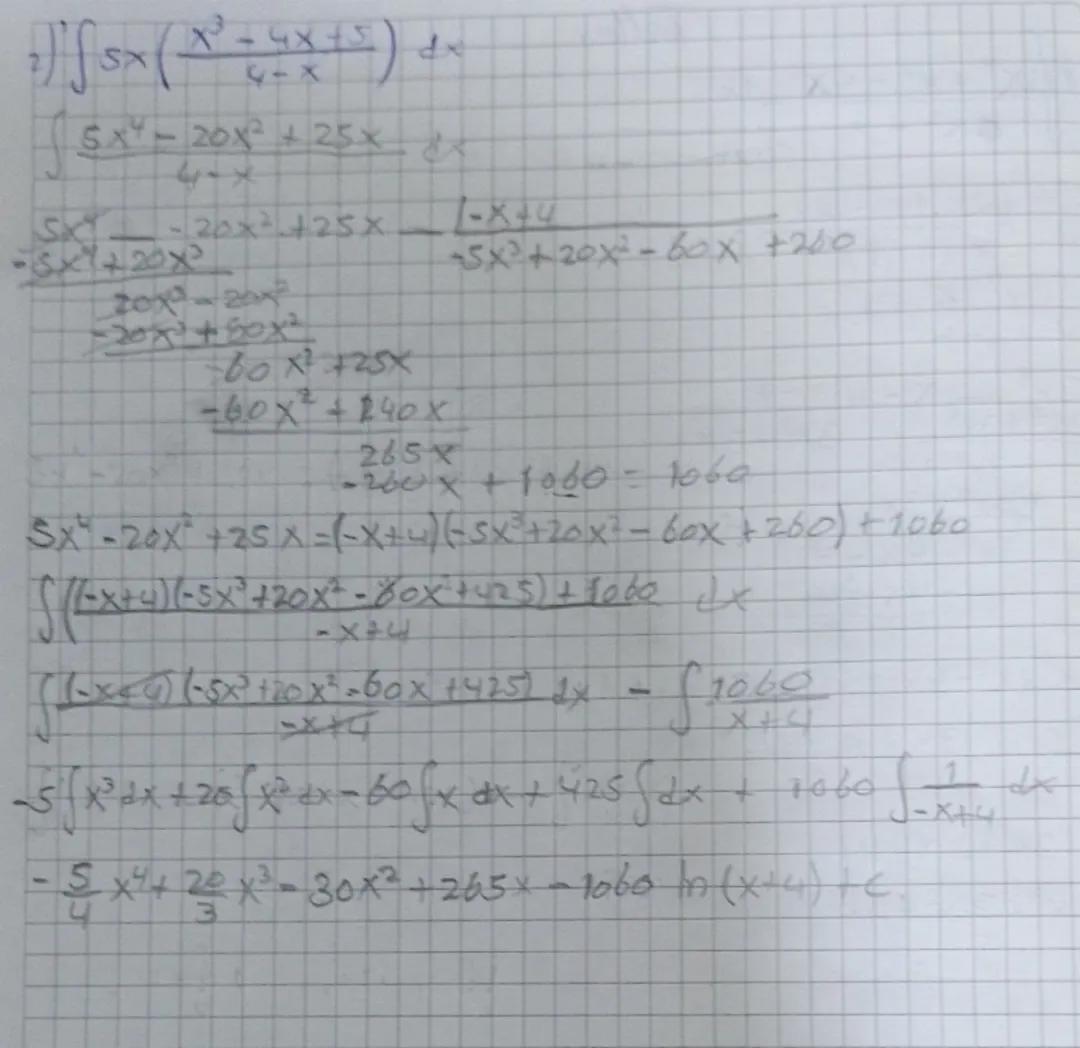 2) ∫ 5x ( (x³ - 4x + 5) / (4 - x) ) dx
∫ (5x⁴ - 20x² + 25x) / (4 - x) dx
5x⁴ __ - 20x² + 25x - |-x+4
-5x⁴ + 20x³ -5x³ + 20x² - 60x + 260
20x³ - 20x²
-20x³ + 80x²
-60x² + 25x
-60x² + 240x
265x
-260x + 1060 = 1060
5x⁴ - 20x² + 25x = (-x+4)(-5x³ + 20x² - 60x + 260) + 1060
∫ ((-x+4)(-5x³ + 20x² - 60x + 425) + 1060) / (-x+4) dx
∫ (-x+4)(-5x³ + 20x² - 60x + 425) / (-x+4) dx - ∫ 1060 / (x+4)
-5∫x³dx + 20∫x²dx - 60∫x dx + 425∫dx + 1060 ∫ 1/(-x+4) dx
- 5/4 x⁴ + 20/3 x³ - 30x² + 265x - 1060 ln(x+4) + c